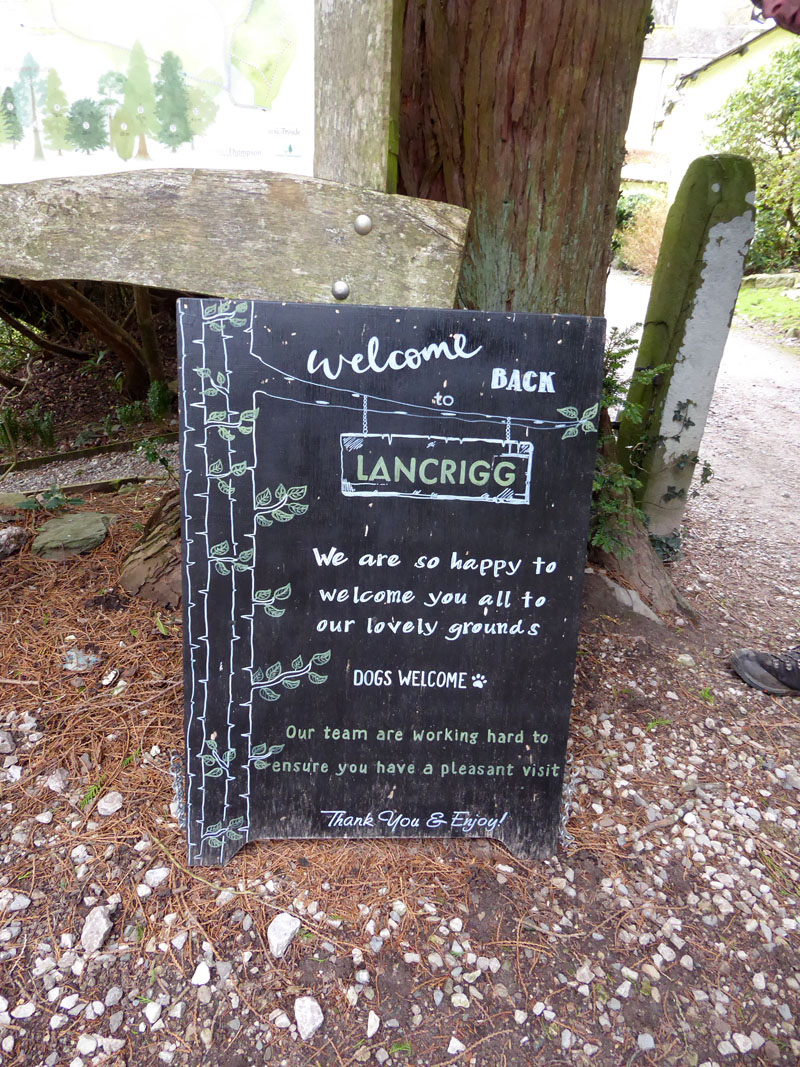 welcome
BACK
to
LANCRIGG
We are so happy to
welcome you all to
our lovely grounds
DOGS WELCOME
Our team are working hard to
ensure you have a pleasant visit
Thank You & Enjoy!